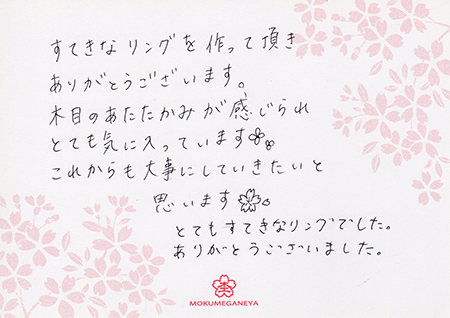 すてきなリングを作って頂き
ありがとうございます。
木目のあたたかみが感じられ
とても気に入っています
これからも大事にしていきたいと
思います
とてもすてきなリングでした。
ありがとうございました。
杢
MOKUMEGANEYA